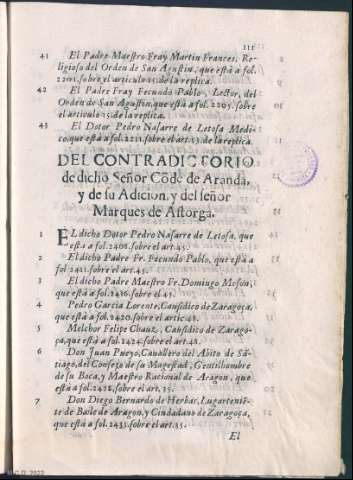 111
41 El Padre Maestro Fray Martin Frances, Re-
ligioso del Orden de San Agustin, que està a fol.
2201. sobre el articulo 15. de la replica.
42 El Padre Fray Fecundo Pablo, Letor, del
Orden de San Agustin, que està a fol. 2209. sobre
el articulo 15. de la replica.
43 El Dotor Pedro Nasarre de Letosa Medi-
co, que està a fol. 2211. sobre el art. 15. de la replica.
DEL CONTRADICTORIO
de dicho Señor Cõde de Aranda,
y de su Adicion, y del señor
Marques de Astorga.
1 EL dicho Dotor Pedro Nasarre de Letosa, que
està a fol. 2406. sobre el art. 45.
2 El dicho Padre Fr. Fecundo Pablo, que està a
fol 2411. sobre el art. 45.
3 El dicho Padre Maestro Fr. Domingo Moson,
que està a fol. 2416. sobre el 45.
4 Pedro Garcia Lorente, Causidico de Zaragoça,
que està a fol. 2420. sobre el artic. 48.
5 Melchor Felipe Chauz, Causidico de Zarago-
ça, que està a fol. 2424. sobre el art. 48.
6 Don Juan Pueyo, Cavallero del Abito de Sã-
tiago, del Consejo de su Magestad, Gentilhombre
de su Boca, y Maestro Racional de Aragon, que
està a fol. 2428. sobre el art. 35.
7 Don Diego Bernardo de Herbar, Lugartenië-
te de Baile de Aragon, y Ciudadano de Zaragoça,
que està a fol. 2433. sobre el art. 35.
El